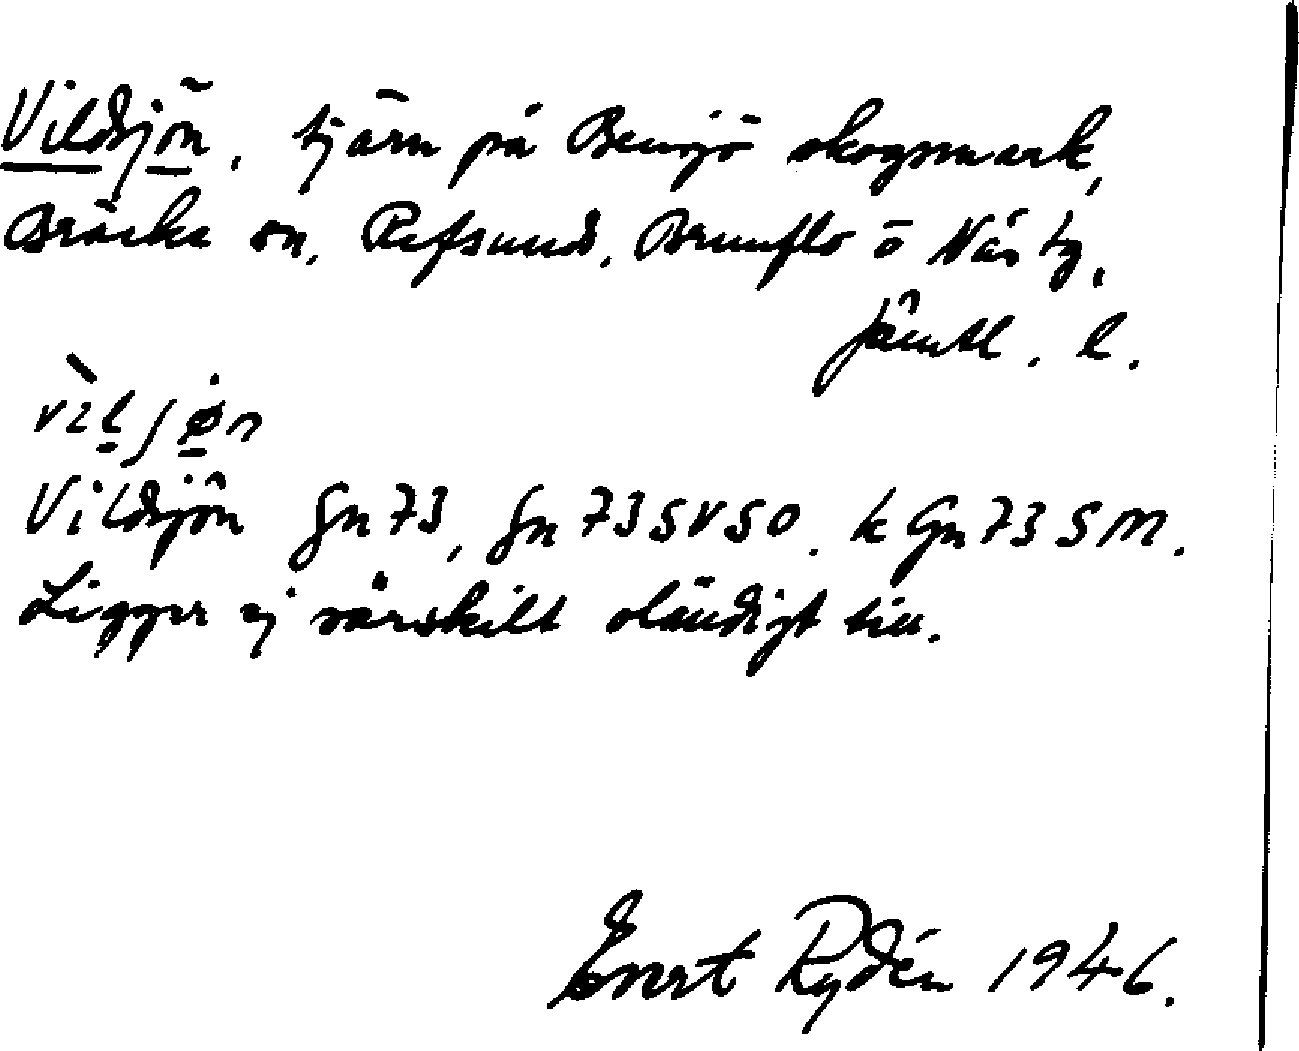 Vildsjön, tjärn på Bensjö skogsmark,
Bräcke sn, Refsund, Brunflo o Näs tg,
Jämtl. l.
vìlʃøn
Vildsjön Gn 73, Gn 73 SVSO. k Gn 73 SM.
Ligger ej särskilt oländigt till.
Evert Rydén 1946.